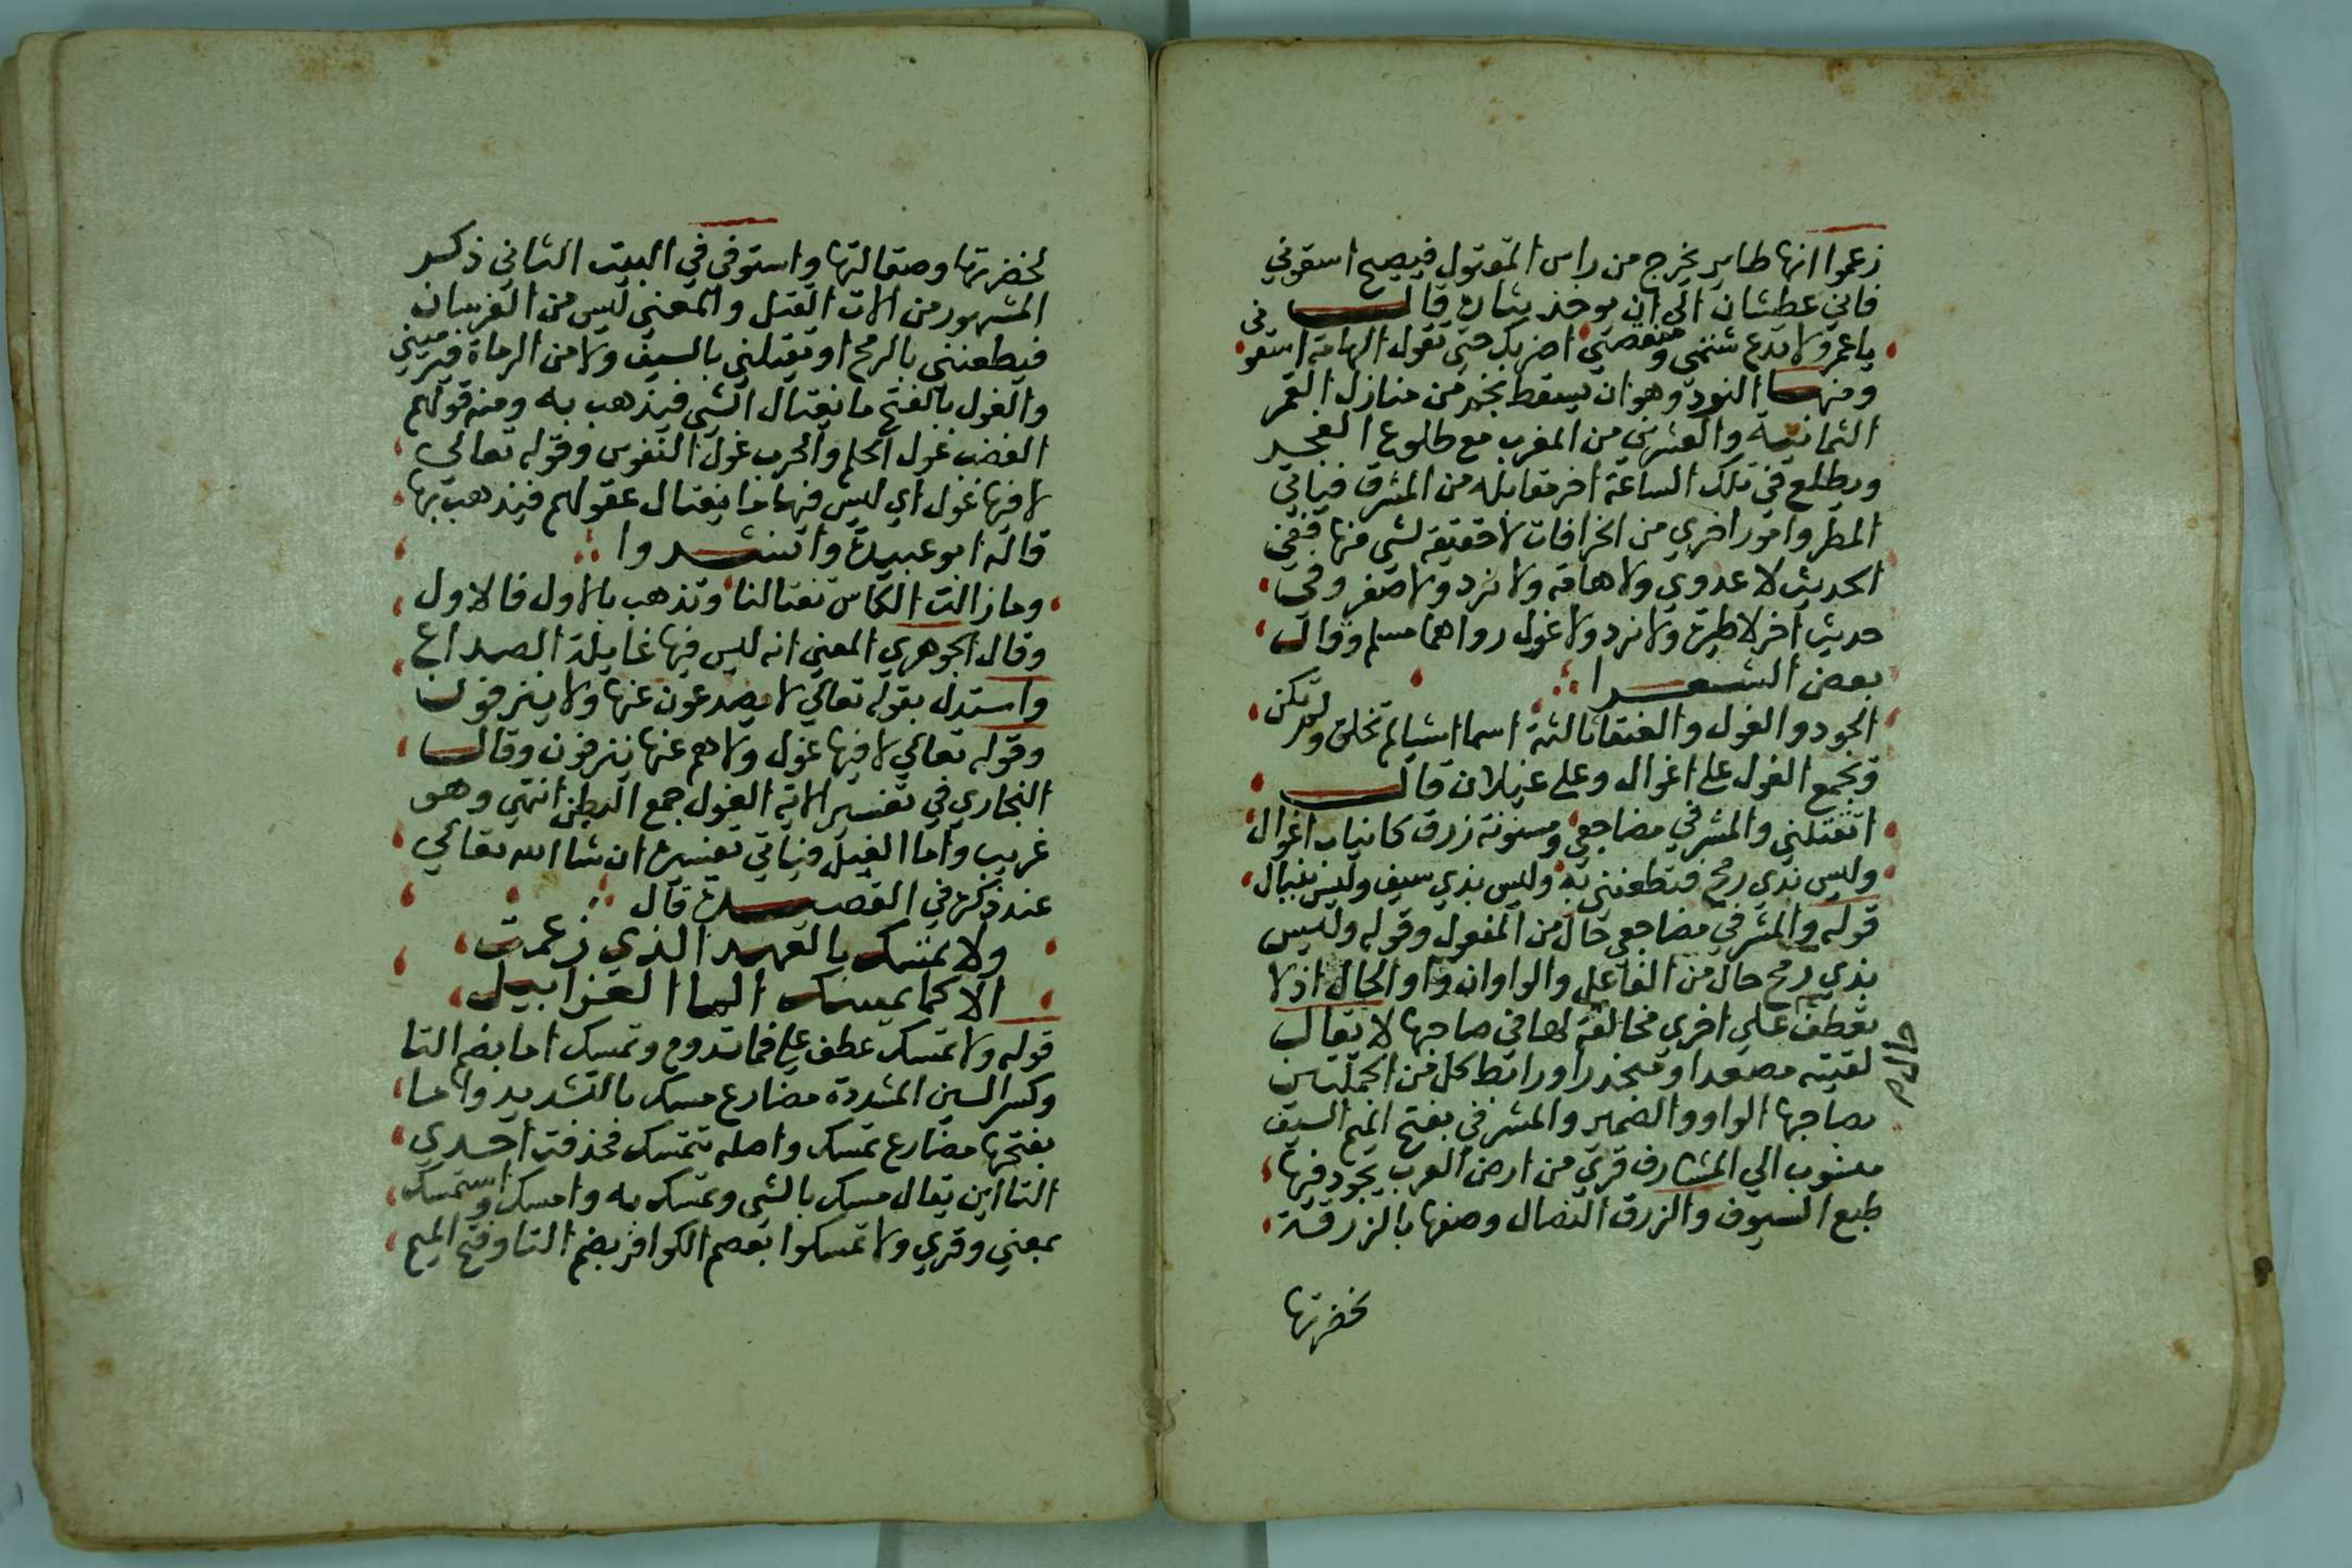 زعموا انها طاير يخرج من راس المقتول فيصيح اسقوني
فاني عطشان الي ان يوخذ بثاره قال
يا عمرو لا تدع شتمي ومنقصتي اضربك حتي تقول الهامة اسقوني
ومنها النوء وهو ان يسقط نجم من منازل القمر
الثمانية والعشرين من المغرب مع طلوع الفجر
ويطلع في تلك الساعة اخر مقابله من المشرق فياتي
المطر وامور اخري من الخرافات لا حقيقة لشي منها ففي
الحديث لا عدوي ولا هامة ولا نوء ولا صفر وفي
حديث اخر لا طيرة ولا نوء ولا غول رواهما مسلم وقال
بعض الشعرا
الجود والغول والعنقا ثالثة اسما اشيا لم تخلق ولم تكن
وتجمع الغول علي اغوال وعلي غيلان قال
اتقتلني والمشرفي مضاجعي ومسنونة زرق كانياب اغوال
وليس بذي رمح فيطعنني به وليس بذي سيف وليس بنبال
قوله والمشرفي مضاجعي حال من المفعول وقوله وليس
بذي رمح حال من الفاعل والواوان واو الحال اذ لا
يعطف علي اخري مخالفة لها في صاحبها لا يقال
لقيته مصعدا ومنحدرا ورابط كل من الجملتين
بصاحبها الواو والضمير والمشرفي بفتح الميم السيف
منسوب الي المشارف قري من ارض العرب يجود فيها
طبع السيوف والزرق النصال وصفها بالزرقة
لخضرتها
لخضرتها وصقالتها واستوفي في البيت الثاني ذكر
المشهور من الات القتل والمعني ليس من الفرسان
فيطعنني بالرمح او يقتلني بالسيف ولا من الرماة فيرميني
والغول بالفتح ما يغتال الشي فيذهب به ومنه قولهم
الغضب غول الحلم والحرب غول النفوس وقوله تعالي
لا فيها غول اي ليس فيها ما يغتال عقولهم فيذهب بها
قاله ابو عبيدة وانشدوا
وما زالت الكاس تغتالنا وتذهب بالاول فالاول
وقال الجوهري المعني انه ليس فيها غايلة الصداع
واستدل بقوله تعالي لا يصدعون عنها ولا ينزفون
وقوله تعالي لا فيها غول ولا هم عنها ينزفون وقال
البخاري في تفسير الاية الغول جمع البطن انتهي وهو
غريب واما الغيل فياتي تفسيره ان شا الله تعالي
عند ذكره في القصيدة قال
ولا تمسك بالعهد الذي زعمت
الا كما يمسك الما الغرابيل
قوله ولا تمسك عطف علي فما تدوم وتمسك اما بضم التا
وكسر السين المشددة مضارع مسك بالتشديد واما
بفتحها مضارع تمسك واصله تتمسك فحذفت احدي
التااين يقال مسك بالشي وتمسك به وامسك واستمسك
بمعني وقري ولا تمسكوا بعصم الكوافر بضم التا وفتح الميم